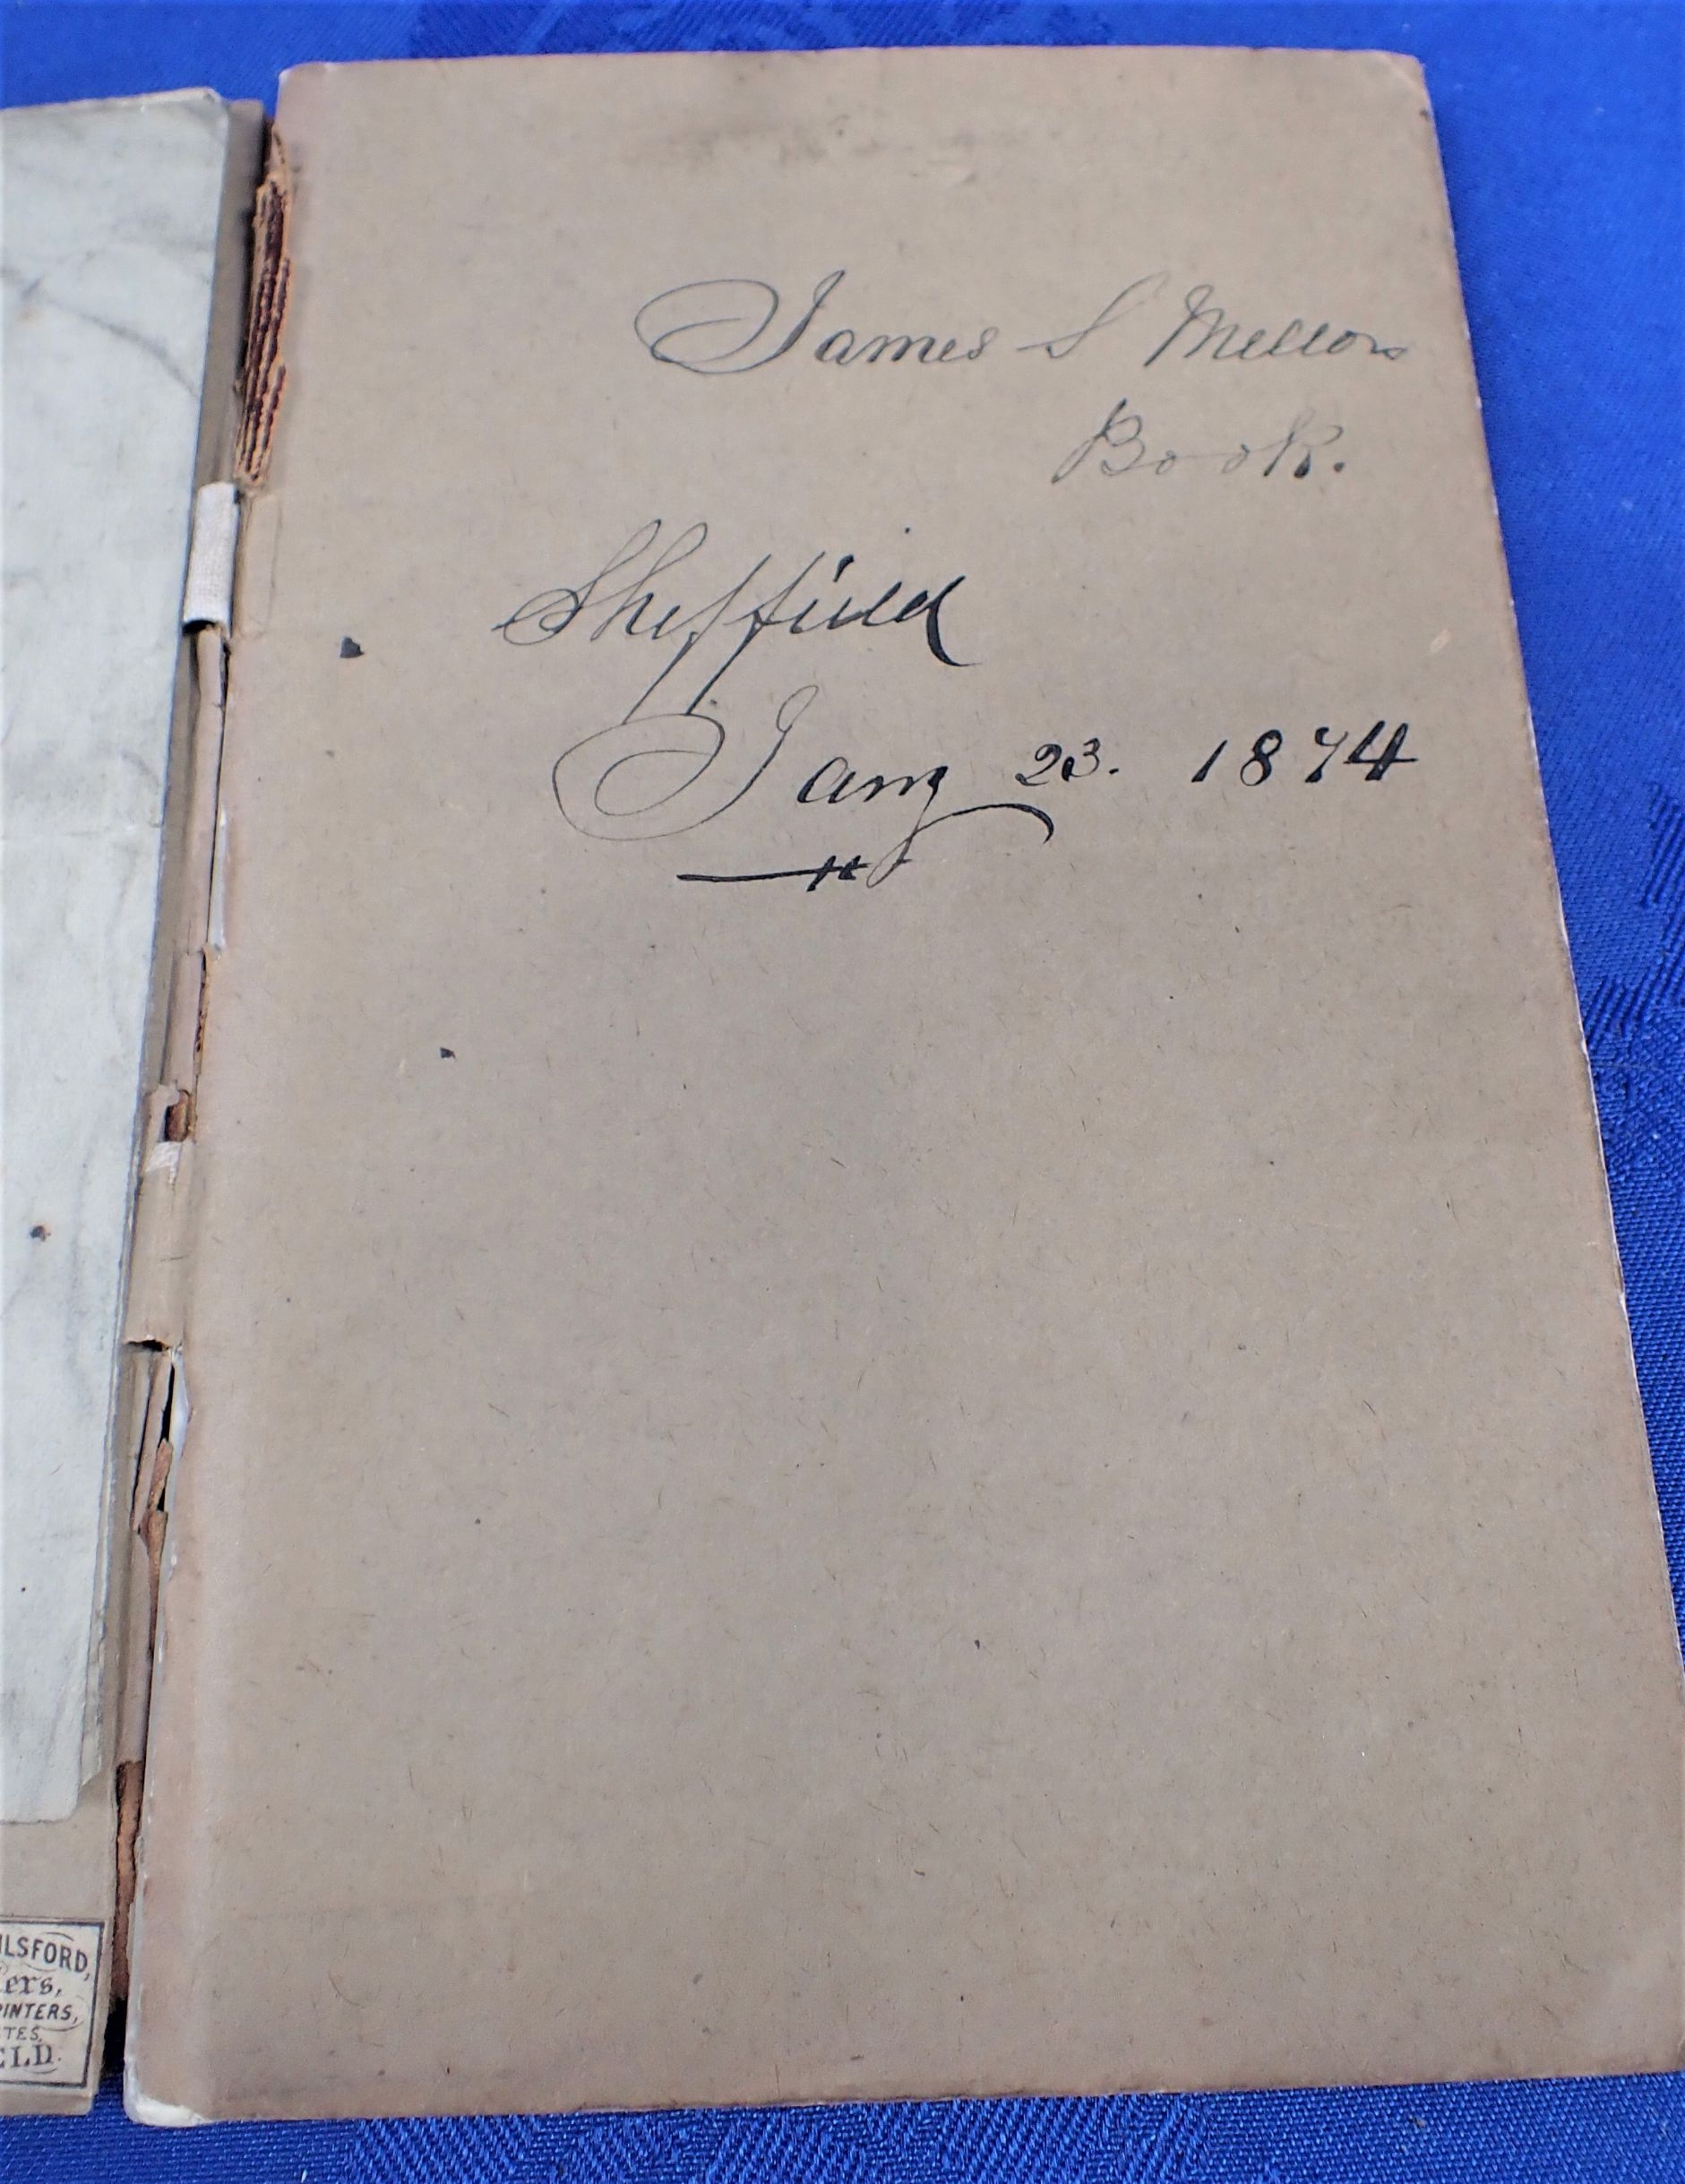 James S Mellors
Book.
Sheffield
Jany 23. 1874
ILSFORD,
ers,
INTERS,
TES,
ELD.